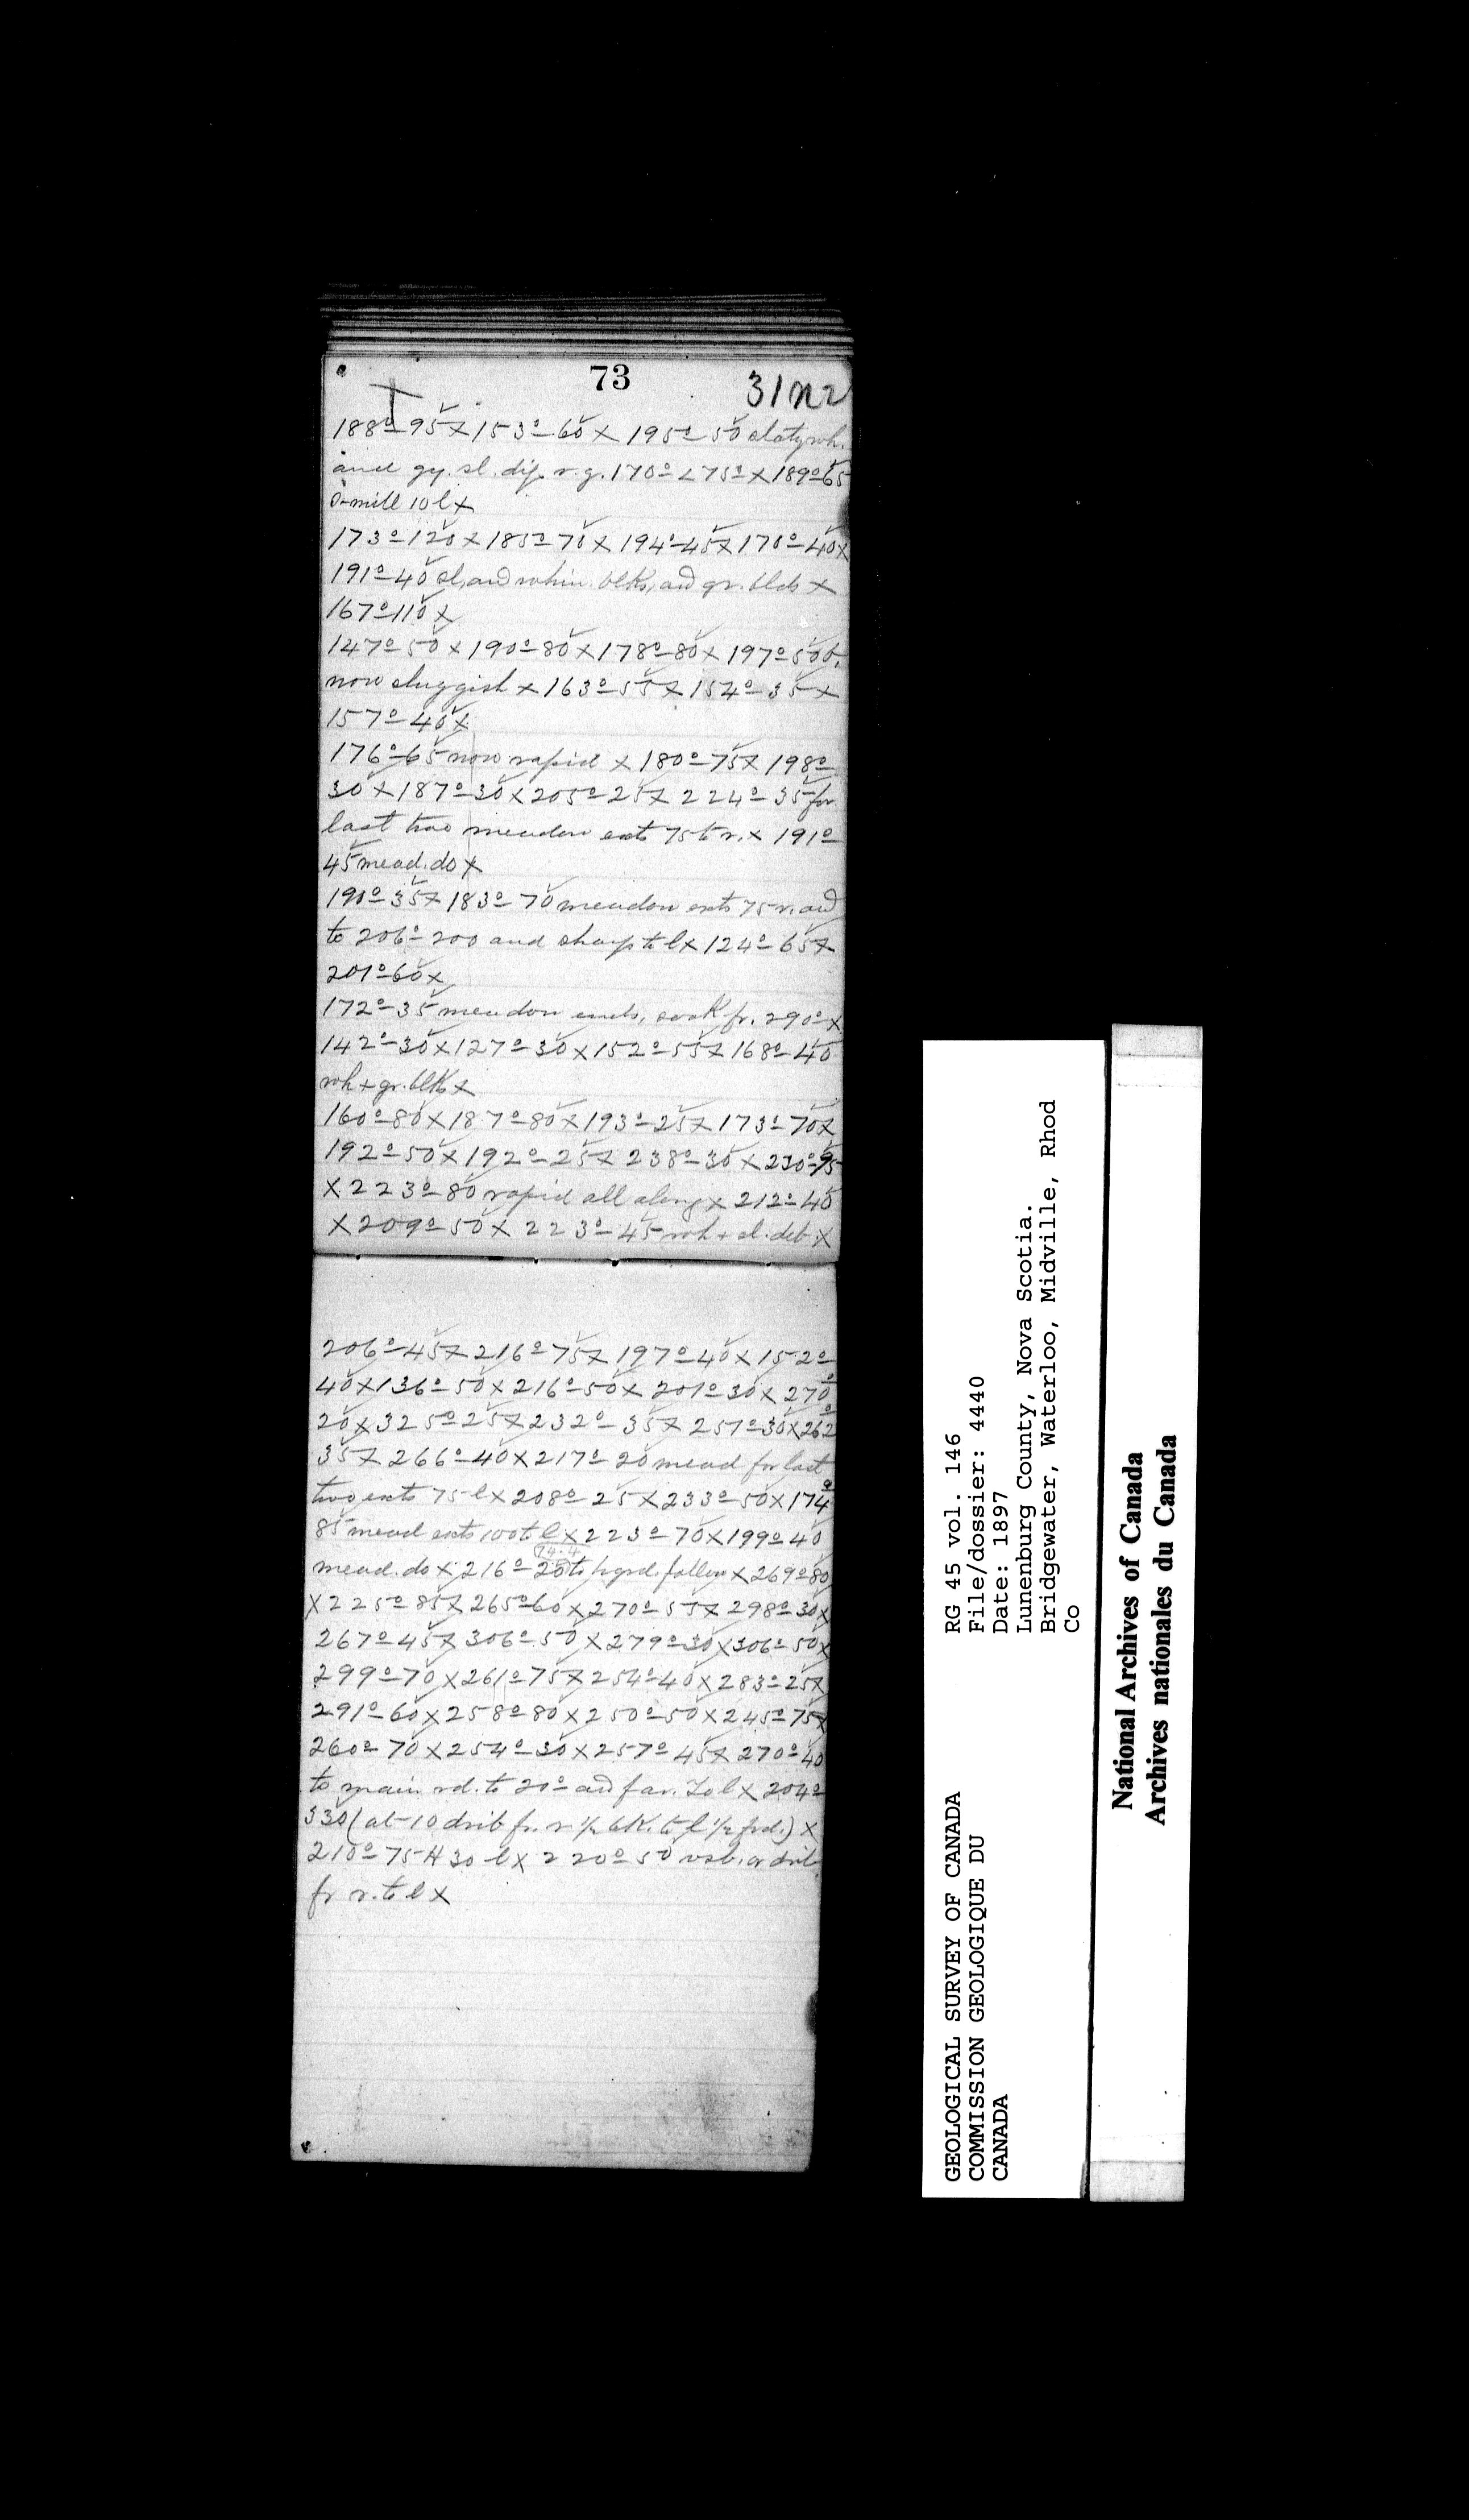 73
31 n2
188º-95 x 153º-60 x 195º-50 slaty wh.
and gy. sl. dip. v.g. 170º < 75º x 189º 65
s-mill 10 l x
173º-120 x 185º-70 x 194º-45 x 170º-40 x
191º-40 sl. and whin. blks, and gr. blds x
167º-110 x
147º-50 x 190º-80 x 178º-80 x 197º 50 b.
now sluggish x 163º-55 x 154º-35 x
157º-40 x
176º-65 now rapid x 180º-75 x 198º
30 x 187º-30 x 205º-25 x 224º-35 for
last two meadow exts 75 to r. x 191º
45 mead. do x
190º-35 x 183º-70 meadow exts 75 r. and
to 206º-200 and sharp to l x 124º-65 x
201º-60 x
172º-35 meadow ends, fr. 290º x
142º-30 x 127º-30 x 152º-55 x 168º-40
wh + gr. blks x
160º-80 x 187º-80 x 193º-25 x 173º-70 x
192º-50 x 192º-25 x 238º-30 x 230º-95
x 223º-80 rapid all along x 212º-40
x 209º-50 x 223º-45 wh + sl. deb. x
206º-45 x 216º-75 x 197º-40 x 152º
40 x 136º-50 x 216º-50 x 201º-30 x 270º
20 x 325º 25 x 232º-35 x 251º-30 x 262º
35 x 266º-40 x 217º-20 mead for last
two exts 75 l x 208º-25 x 233º-50 x 174º
85 mead exts 100 to l x 223º-70 x 199º 40
74.4
mead. do x 216º-20 to follow x 269º 80
x 225º 85 x 265º 60 x 270º-55 x 298º 30 x
267º-45 x 306º-50 x 279º-30 x 306º-50 x
299º-70 x 261º 75 x 254º-40 x 283º-25 x
291º-60 x 258º-80 x 250º-50 x 245º 75 x
260º-70 x 254º-30 x 257º 45 x 270º 40
to main rd. to 20º and far. 70 l x 204º
330 (at 10 drib fr. r ½ bk. to l ½ frd.) x
210º-75 H 30 l x 220º 50 vsb. or drib.
fr r. to l x
GEOLOGICAL SURVEY OF CANADA
COMMISSION GEOLOGIQUE DU
CANADA
RG 45 vol. 146
File/dossier: 4440
Date: 1897
Lunenburg County, Nova Scotia.
Bridgewater, Waterloo, Midville, Rhod
Co
National Archives of Canada
Archives nationales du Canada